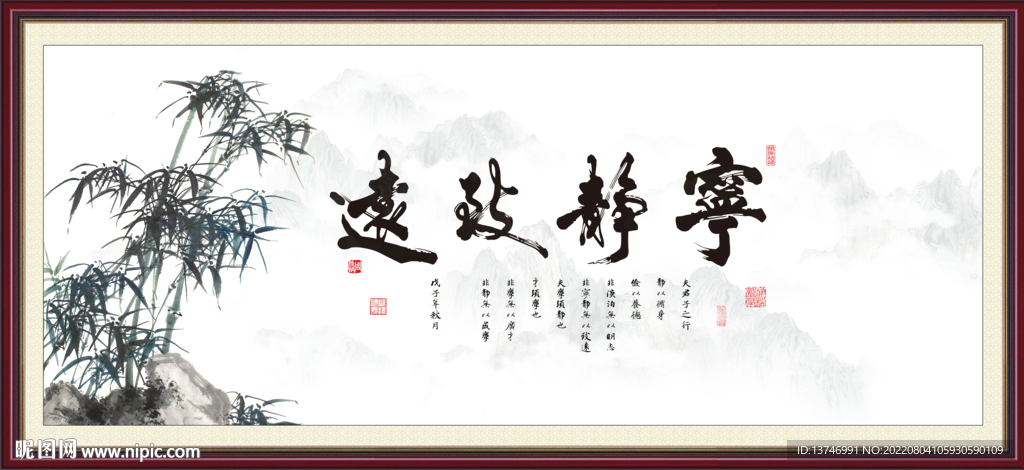 寧静致遠
夫君子之行
静以脩身
儉以養德
非淡泊無以明志
非寧静無以致遠
夫學須静也
才須學也
非學無以廣才
非静無以成學
戊子年秋月
昵图网 www.nipic.com
ID:13746991 NO:20220804105930590109